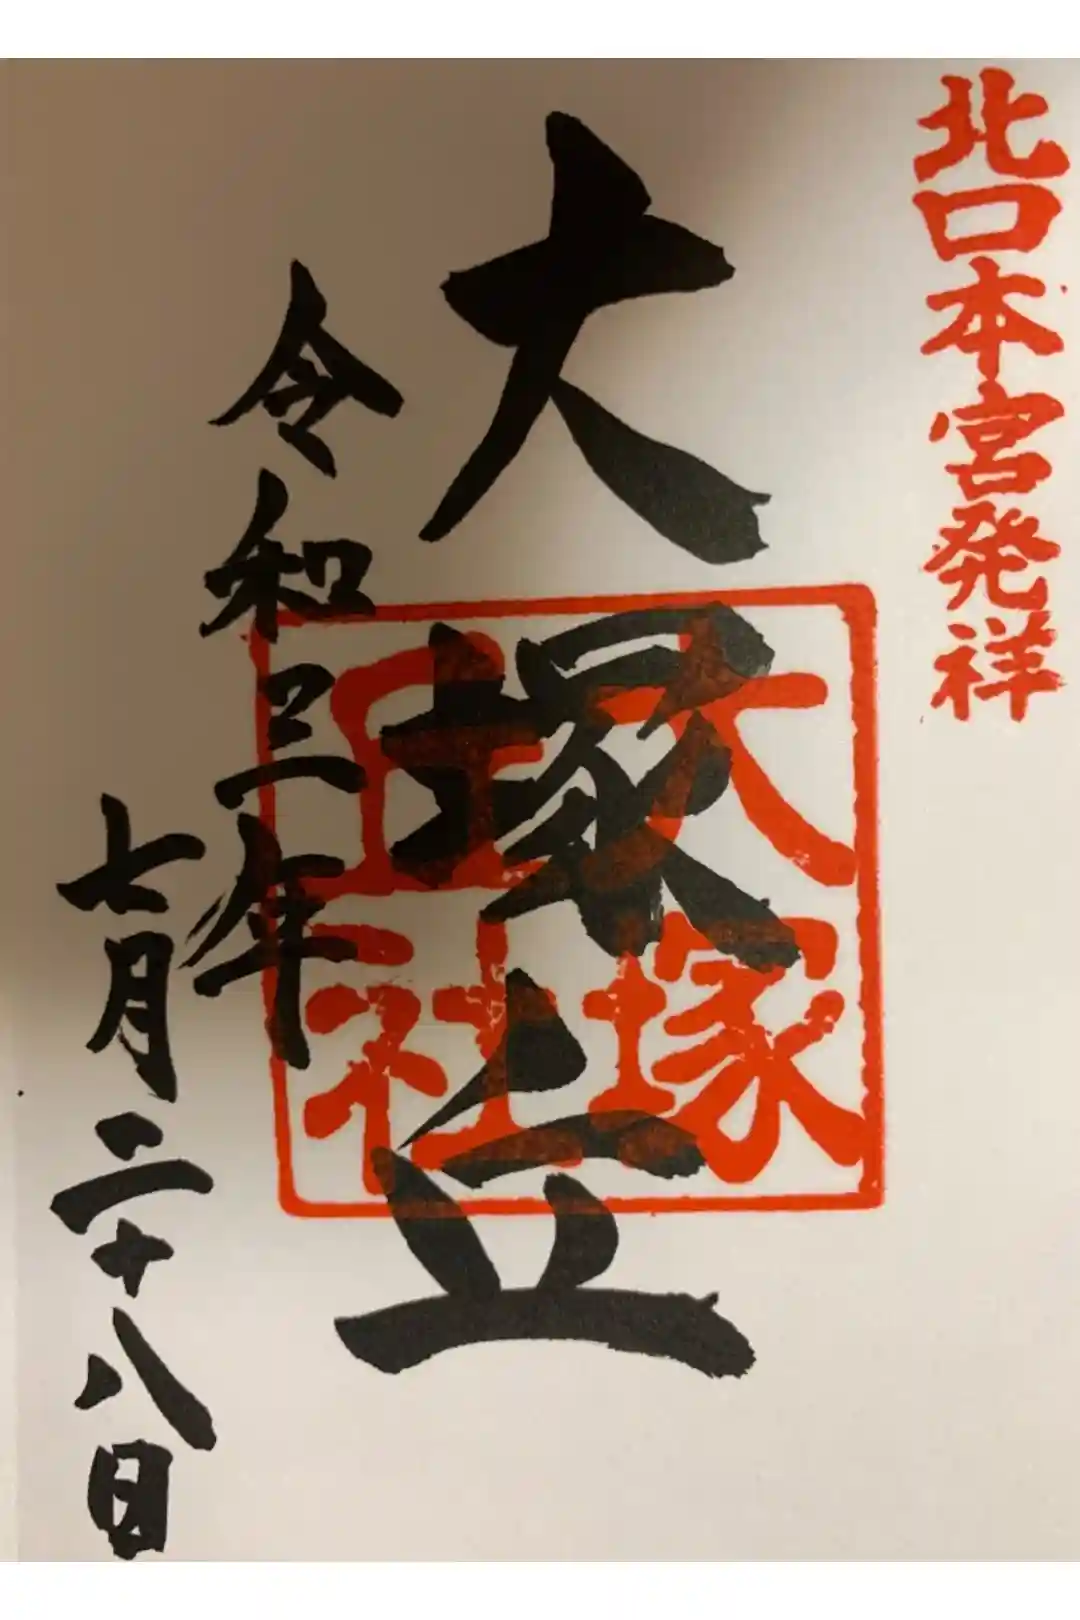 北口本宮発祥
大塚丘
大塚
丘社
令和三年
七月二十八日